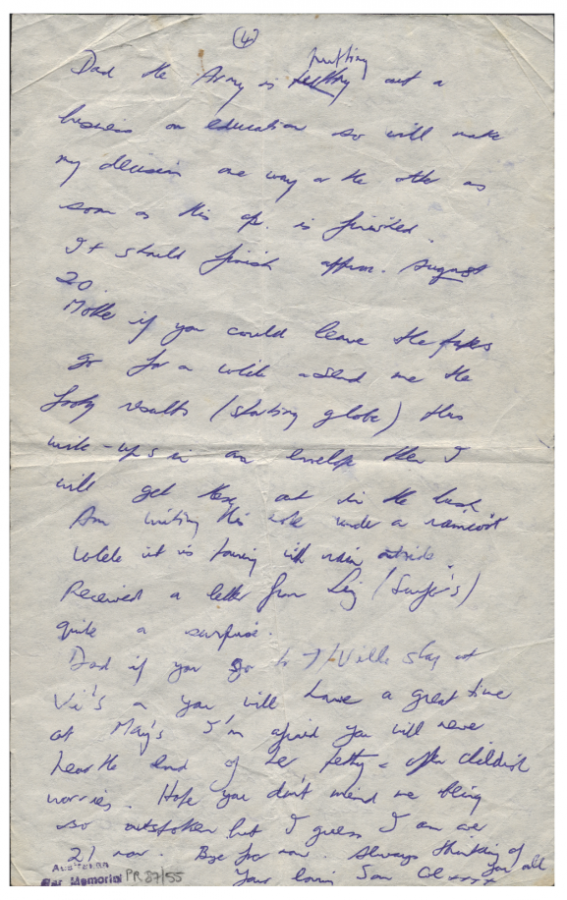 (4)
putting
Dad the Army is out a
business on education so will make
my decision one way or the other as
soon as this op. is finished.
It should finish approx. August
20.
Mother if you could leave the papers
go for a while + send me the
footy results (sporting globe) this
write-ups in an envelope then I
will get them out in the bush
Am writing this note under a raincoat
while it is pouring with rain outside.
Received a letter from (Surfer's)
quite a surprise.
Dad if you go to T/Ville stay at
Vi's + you will have a great time
at May's I'm afraid you will never
hear the end of her petty + often childish
worries. Hope you don't mind me being
so outspoken but I guess I am over
21 now. Bye for now. Always thinking of
you all
Your loving Son xxxx
Australian
War Memorial PR 87/55